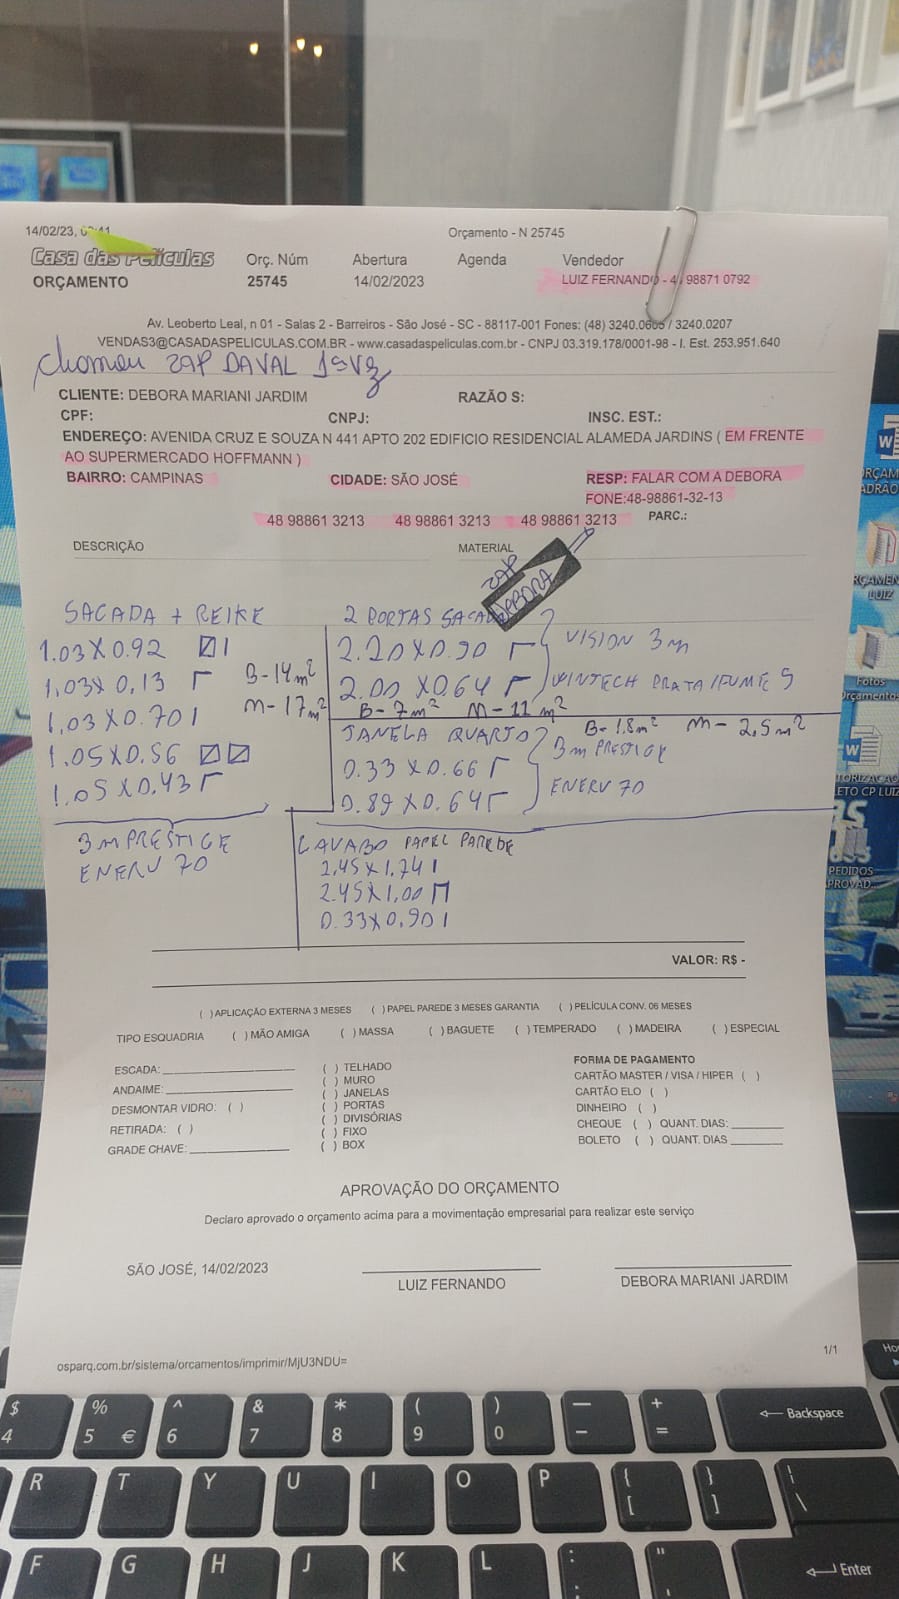 14/02/23,
Orçamento - N 25745
Casa das Películas
Orç. Núm Abertura Agenda Vendedor
ORÇAMENTO 25745 14/02/2023 LUIZ FERNANDO - 4 98871 0792
Av. Leoberto Leal, n 01 - Salas 2 - Barreiros - São José - SC - 88117-001 Fones: (48) 3240.0605 / 3240.0207
VENDAS3@CASADASPELICULAS.COM.BR - www.casadaspeliculas.com.br - CNPJ 03.319.178/0001-98 - I. Est. 253.951.640
chamou zap DAVAL
CLIENTE: DEBORA MARIANI JARDIM RAZÃO S:
CPF: CNPJ: INSC. EST.:
ENDEREÇO: AVENIDA CRUZ E SOUZA N 441 APTO 202 EDIFICIO RESIDENCIAL ALAMEDA JARDINS ( EM FRENTE
AO SUPERMERCADO HOFFMANN )
BAIRRO: CAMPINAS CIDADE: SÃO JOSÉ RESP: FALAR COM A DEBORA
FONE:48-98861-32-13
48 98861 3213 48 98861 3213 48 98861 3213 PARC.:
DESCRIÇÃO MATERIAL
ZAP
DEBORA
SACADA + REIKE
1.03X0.92 1
1,03X 0,13
1,03X0.70 1
1.05X0.56
1.05X0.43
B-14m²
M-17m²
3M PRESTIGE
ENERV 70
2 PORTAS SACADA
2.20X0.90
2.00X0.64
VISION 3m
WINTECH PRATA/FUME 5
B-7m² M-11m²
JANELA QUARTO
B-1.8m² M-2,5m²
0.33X0.66
0.89X0.64
3m PRESTIGE
ENERV 70
LAVABO PAPEL PAREDE
2,45X1,74 1
2.45X1,00
0.33X0,90 1
VALOR: R$ -
( )APLICAÇÃO EXTERNA 3 MESES ( ) PAPEL PAREDE 3 MESES GARANTIA ( ) PELÍCULA CONV. 06 MESES
TIPO ESQUADRIA ( ) MÃO AMIGA ( ) MASSA ( ) BAGUETE ( ) TEMPERADO ( ) MADEIRA ( ) ESPECIAL
ESCADA:
ANDAIME:
DESMONTAR VIDRO: ( )
RETIRADA: ( )
GRADE CHAVE:
( ) TELHADO
( ) MURO
( ) JANELAS
( ) PORTAS
( ) DIVISÓRIAS
( ) FIXO
( ) BOX
FORMA DE PAGAMENTO
CARTÃO MASTER / VISA / HIPER ( )
CARTÃO ELO ( )
DINHEIRO ( )
CHEQUE ( ) QUANT. DIAS:
BOLETO ( ) QUANT. DIAS
APROVAÇÃO DO ORÇAMENTO
Declaro aprovado o orçamento acima para a movimentação empresarial para realizar este serviço
SÃO JOSÉ, 14/02/2023
LUIZ FERNANDO
DEBORA MARIANI JARDIM
osparq.com.br/sistema/orcamentos/imprimir/MjU3NDU=
1/1
Fotos
PEDIDOS
$ % ^ & * ( ) — + Backspace
4 5 € 6 7 8 9 0 - =
R T Y U I O P { [ } ] \
F G H J K L : ; " Enter